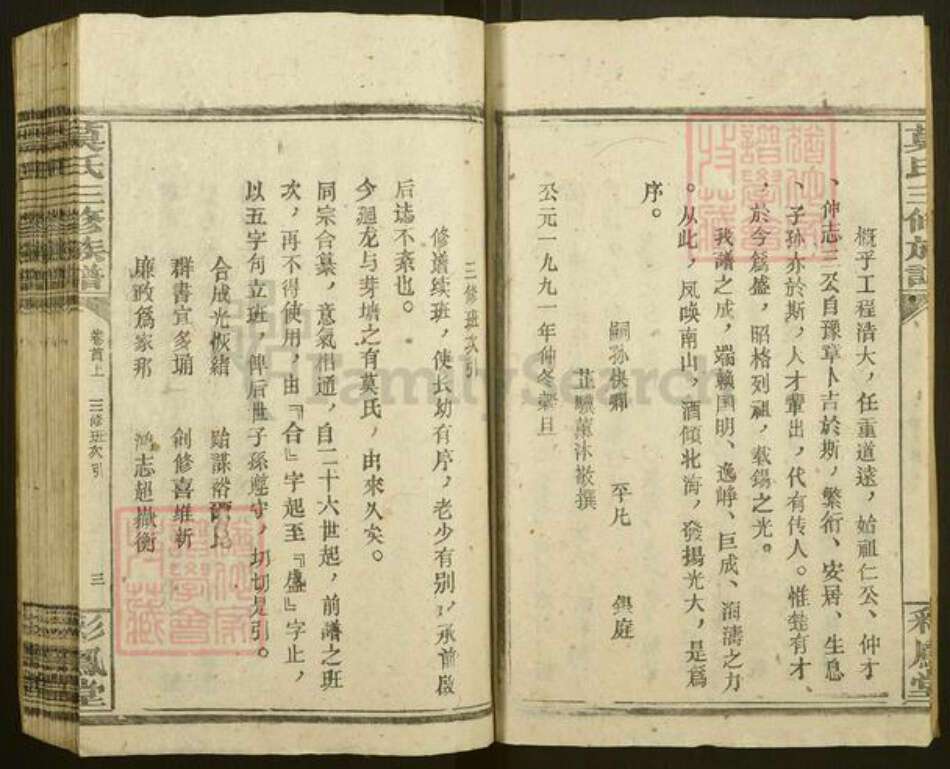 莫氏三修族譜
彩鳳堂
概乎工程浩大，任重道遠，始祖仁公、仲才
、仲志三公自豫章卜吉於斯，繁衍、安居、生息
、子孙亦於斯，人才輩出，代有传人。惟楚有才
，於今爲盛，昭格列祖，载錫之光。
我譜之成，端赖国明、逸峥、巨成、海濤之力
。从此，凤唤南山，酒倾北海，發揚光大，是爲
序。
嗣孙 平凡 興庭
薰沐敬撰
公元一九九一年仲冬穀旦
三修班次引
修谱续班，使长幼有序，老少有别，承前啟
后誌不紊也。
今迴龙与芽塘之有莫氏，由来久矣。
同宗合纂，意氣相通，自二十六世起，前譜之班
次，再不得使用，由『合』字起至『盛』字止，
以五字句立班，俾后世子孫遵守，切切是引。
合成光恢緒 贻謀裕
群書宜多诵 創修喜维新
廉政爲家邦 鴻志超嶽衡
莫氏三修族譜
卷首上
三修班次引
三
彩鳳堂
FamilySearch